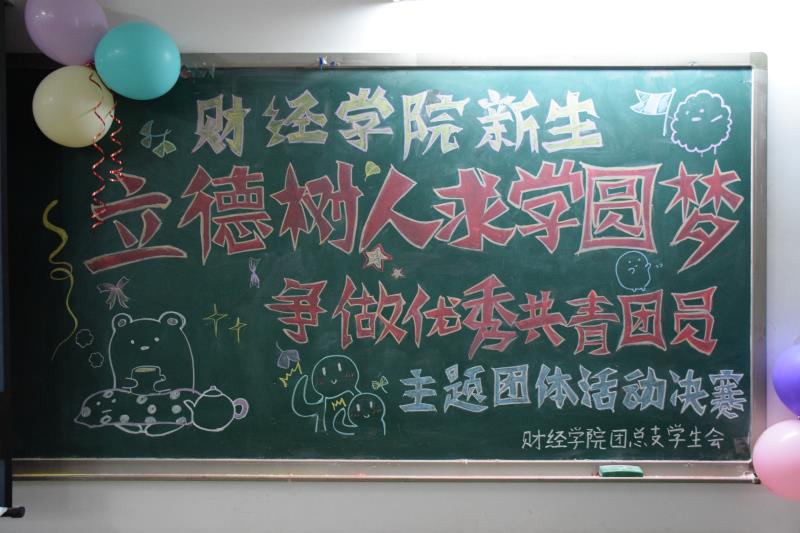 财经学院新生
立德树人求学圆梦
争做优秀共青团员
主题团体活动决赛
财经学院团总支学生会